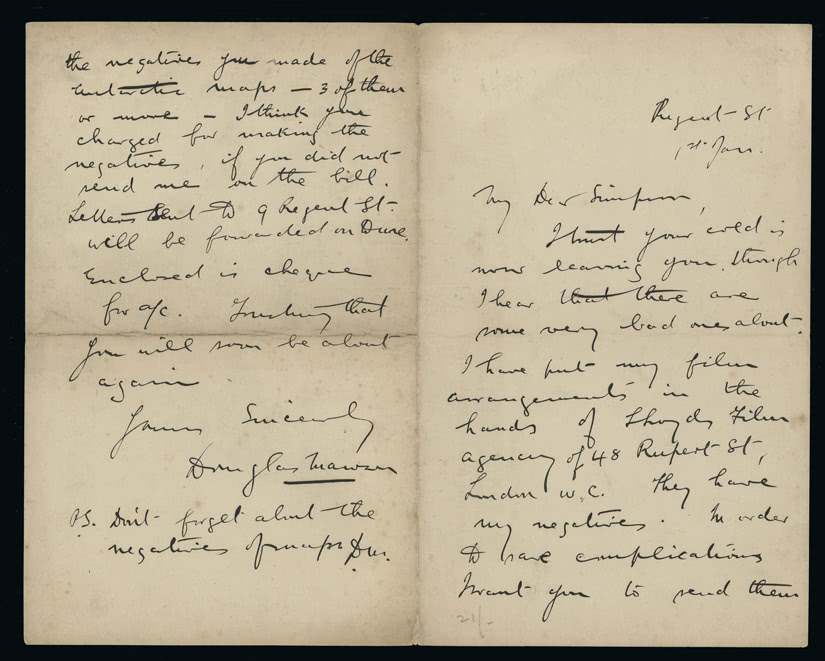 Regent St
1st Jan.
My Dear Simpson,
I trust your cold is
now leaving you, though
I hear that there are
some very bad ones about.
I have put my film
arrangements in the
hands of Lloyds Film
agency of 48 Rupert St,
London W.C. They have
my negatives. In order
to save complications
I want you to send them
21/-
the negatives you made of the
antarctic maps — 3 of them
or more — I think you
charged for making the
negatives, if you did not
send me on the bill.
Letters sent to 9 Regent St.
will be forwarded on
Enclosed is cheque
for a/c. Trusting that
you will soon be about
again
Yours Sincerely
Douglas Mawson
PS. Don't forget about the
negatives of maps